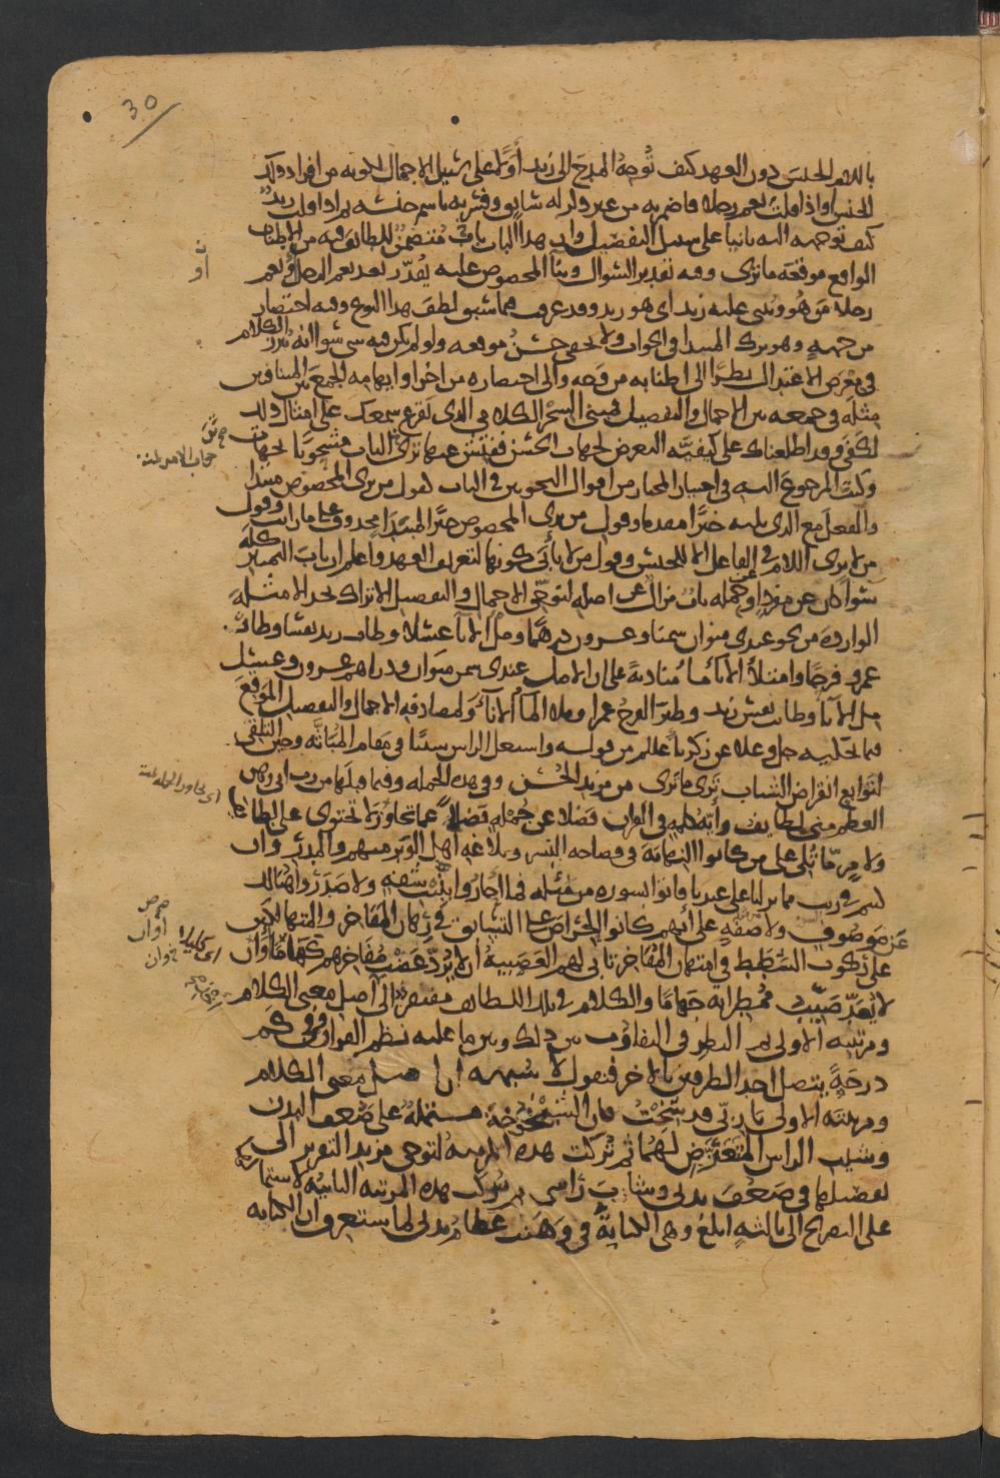 30
باللام للجنس دون العهد كيف توجه المدح الى زيد أولا على سبيل الاجمال لكونه من افراد ذلك
الجنس واذا قلت نعم رجلا فاضمرته من غير ذكر له سابق وفسرته باسم جنسه ثم اذا قلت زيد
كيف توجهه اليه ثانيا على سبيل التفصيل وان هذا الباب باب متضمن للطائف فيه من الإطناب
الواقع موقعه ما ترى وفيه تقدير السؤال وبنا المخصوص عليه يقدر بعد نعم الرجل أو نعم
أو
رجلا من هو ويبنى عليه زيد اى هو زيد وقد عرفت فيما سبق لطف هذا النوع وفيه اختصار
من جهة وهو ترك المبتدا في الجواب ولا يخفى حسن موقعه ولو لم يكن فيه شى سوا انه يبرز الكلام
في معرض الاعتدال نظرا الى اطنابه من وجه والى اختصاره من اخر او ايهامه الجمع بين المتنافيين
مثله في جمعه بين الاجمال والتفصيل فمبنى السحر الكلامى الذى يقرع سمعك على امثال ذلك
لكفى وقد اطلعناك على كيفية التعرض لجهات الحسن ففتش عنها ترى الباب مشحونا بجهات
وكنت المرجوع اليه في اختيار المختار من اقوال النحويين في الباب كقول من يرى المخصوص مبتدا
والفعل مع الذى يليه خبرا مقدما وقول من يرى المخصوص خبرا لمبتدا محذوف على ما رايت وقول
من لا يرى اللام في الفاعل الا للجنس وقول من لا يأبى كونها لتعريف العهد واعلم ان باب التمييز كله
سواء كان عن مفرد او عن جملة باب مزال عن اصله لتوخى الاجمال والتفصيل الا تراك تجد الامثلة
الواردة من نحو عندى منوان سمنا وعشرون درهما وملء الاناء عسلا وطاب زيد نفسا وطار
عمرو فرحا وامتلأ الاناء ماء منادية على ان الاصل عندى سمن منوان ودراهم عشرون وعسل
ملء الاناء وطابت نفس زيد وطير الفرح عمرا وملا الماء الاناء ولمصادفة الاجمال والتفصيل الموقع
فيما يحكيه جل وعلا عن زكريا عليه السلام من قوله واشتعل الراس شيبا في مقام المباثة وحين التلقى
لتوابع انقراض الشباب ترى ما ترى من مزيد الحسن وفي هذه الجملة وفيما قبلها من رب انى وهن
العظم منى لطائف وأية كلمة في القرآن فضلا عن جملة فضلا عما تجاوز لا تحتوى على لطائف
ولأمر ما تلى على من كانوا النهاية في فصاحة البشر وبلاغة أهل الوبر منهم والمدر وان
كنتم في ريب مما نزلنا على عبدنا فاتوا بسورة من مثله فما احاروا ببنت شفة ولا صدر هنالك
عن موصوف ولا صفة على أنهم كانوا الحراص على التسابق في رهان المفاخر والمتهالكين
على ركوب الشطط في امتهان المفاخر تابى لهم العصبية أن لا يرد غضب مفاخرهم كهاما وأن
لا يعد صيب ممطراته جهاما والكلام في تلك اللطائف مفتقر الى أصل معنى الكلام
ومرتبته الاولى ثم النظر في التفاوت بين ذلك وبين ما عليه نظم القرآن وفي كم
درجة يتصل احد الطرفين بالاخر فنقول لا شبهة ان اصل معنى الكلام
ومرتبته الاولى يا ربى قد شخت فان الشيخوخة مشتملة على ضعف البدن
وشيب الراس المتعرض لهما ثم تركت هذه المرتبة لتوخى مزيد التقرير الى
تفصيلها في ضعف بدنى وشاب راسى ثم تركت هذه المرتبة الثانية لاشتمالها
على التصريح الى ثالثة ابلغ وهى الكناية في وهنت عظام بدنى لما ستعرف ان الكناية